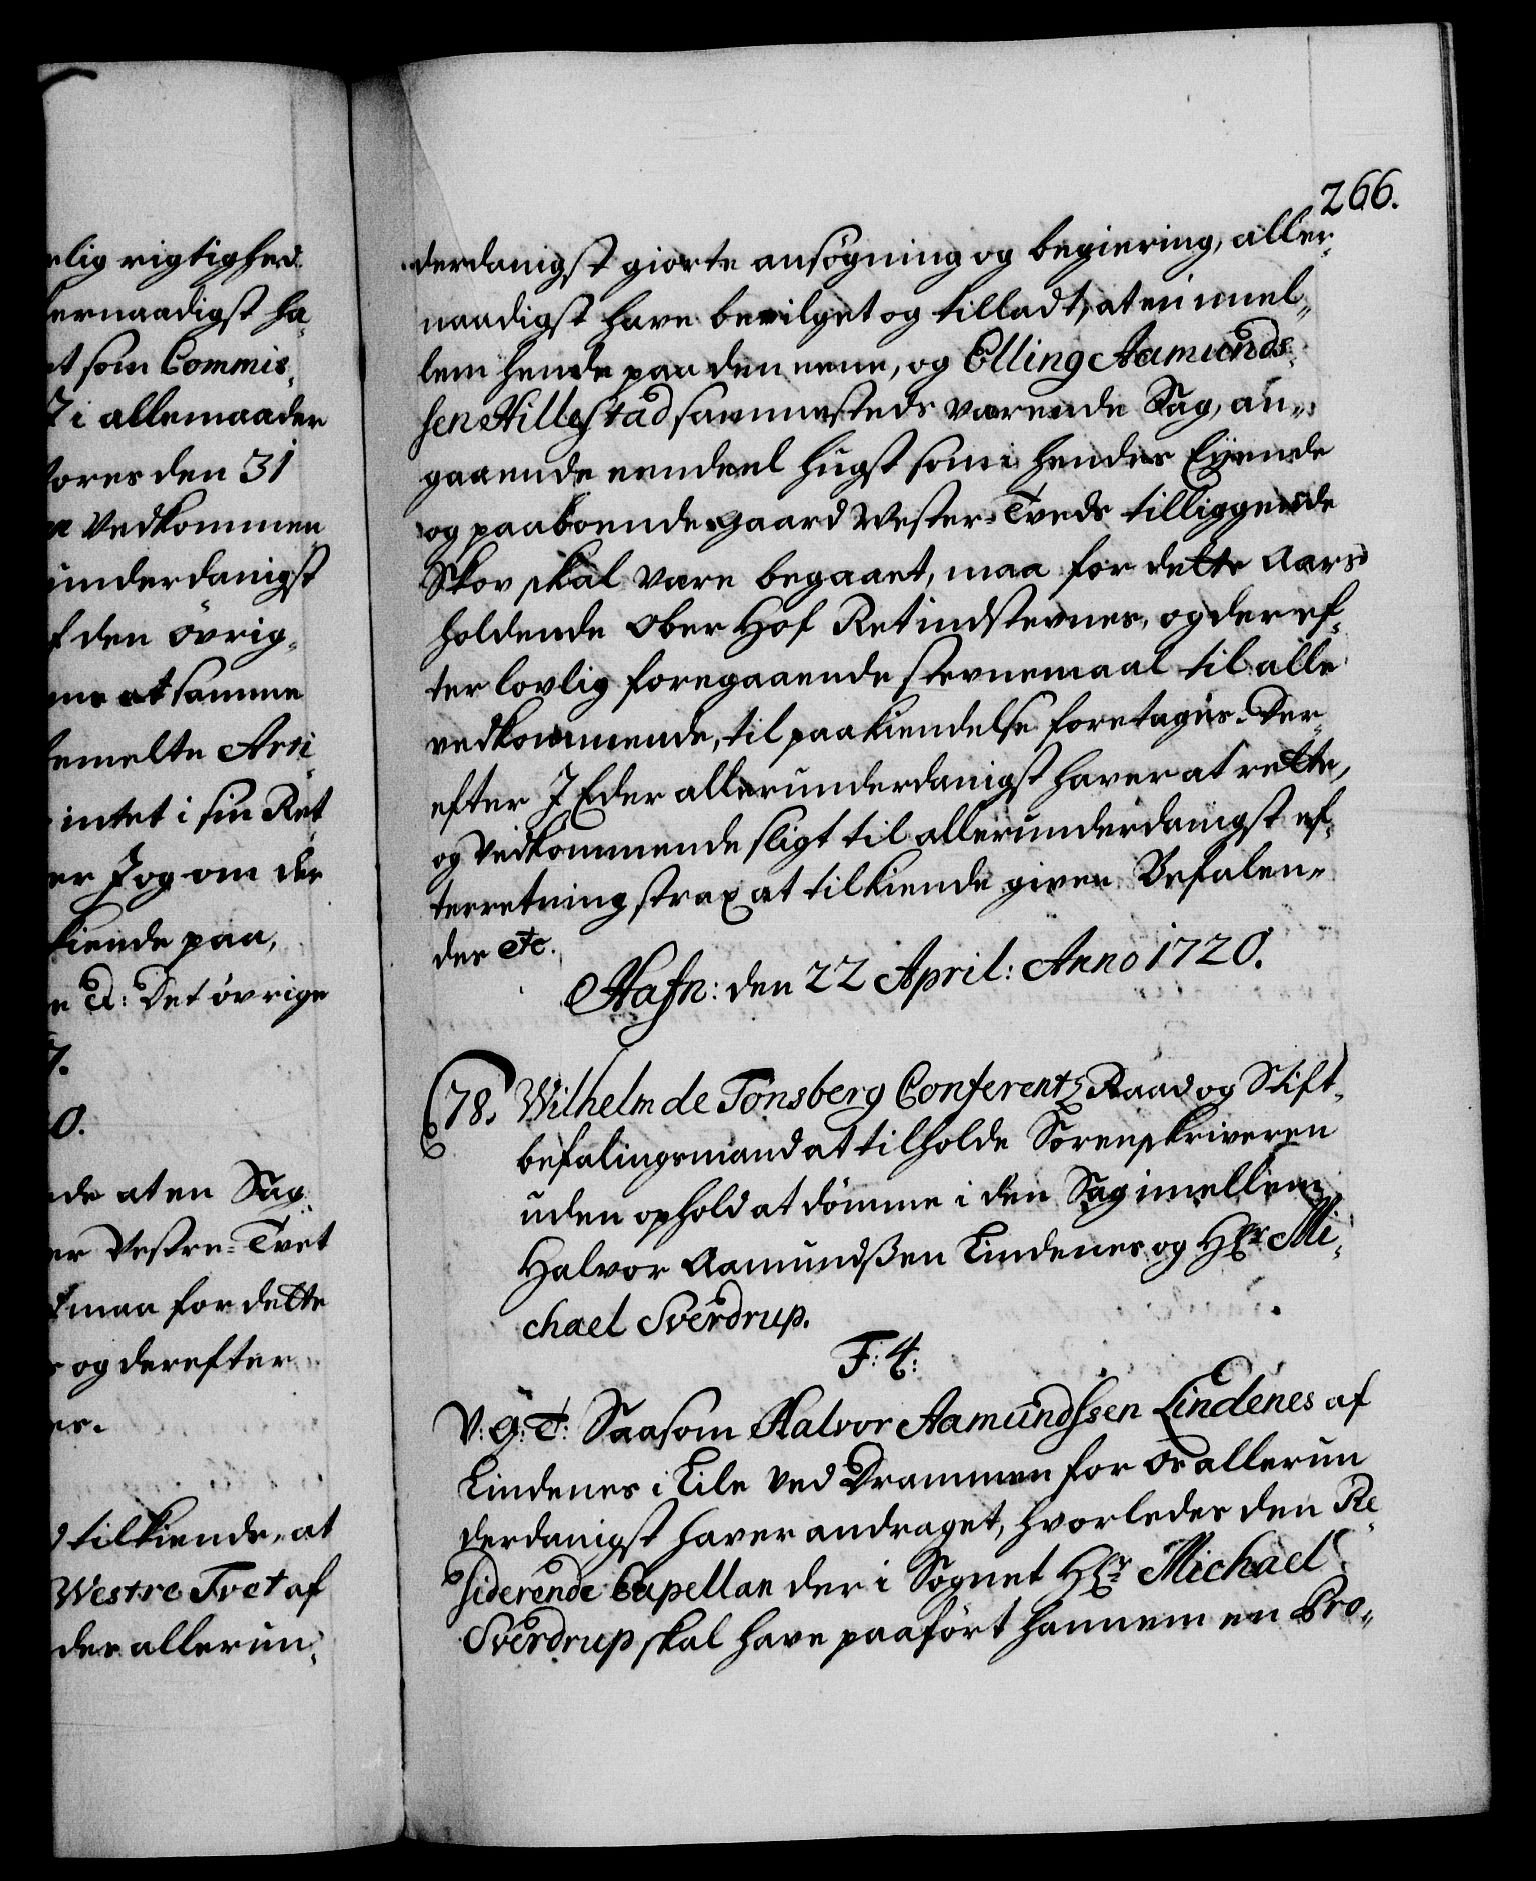 rlig rigtighed
ernaadigst ha-
et som Commis-
i allemaader
fores den 31
Vedkommen
underdanigst
f den övrig-
me at samme
bemelte Arri-
intet i sin Ret
er Jog om der
kiende paa,
Det övrige
7.
0.
nde at en Sag
er Vestre-Tvet
maa for dette
og derefter
es.
tilkiende, at
Westre Tvet af
des allerun-
266.
derdanigst giorte ansögning og begiering, aller-
naadigst have bevilget og tilladt, at en imel-
lem hende paa den eene, og Elling Aamunds-
sen Hillestad sammesteds værende Sag, an-
gaaende eendeel hugst som i hendes Eyende
og paaboende gaard Vester-Tveds tilliggende
Skov skal være begaaet, maa for dette Aars
holdende Ober Hof Ret indstevnes, og der ef-
ter lovlig foregaaende stevnemaal til alle
vedkommende, til paakiendelse foretages. Der-
efter I Eder allerunderdanigst haver at rette,
og Vedkommende sligt til allerunderdanigst ef-
terretning strax at tilkiende given. Befalen-
des etc.
Hafn: den 22 April: Anno 1720.
78. Wilhelm de Tonsberg Conferentz Raad og Stift-
befalingsmand at tilholde Sorenskriveren
uden ophold at dömme i den Sag imellem
Halvor Aamundßen Lindenes og Hr Mi-
chael Sverdrup.
F: 4:
V: G: T: Saasom Halvor Aamundssen Lindenes af
Lindenes i Lile ved Drammen for Os allerun
derdanigst haver andraget, hvorledes den Re-
siderende Capellan der i Sognet Hr Michael
Sverdrup skal have paafört hannem en Pro-